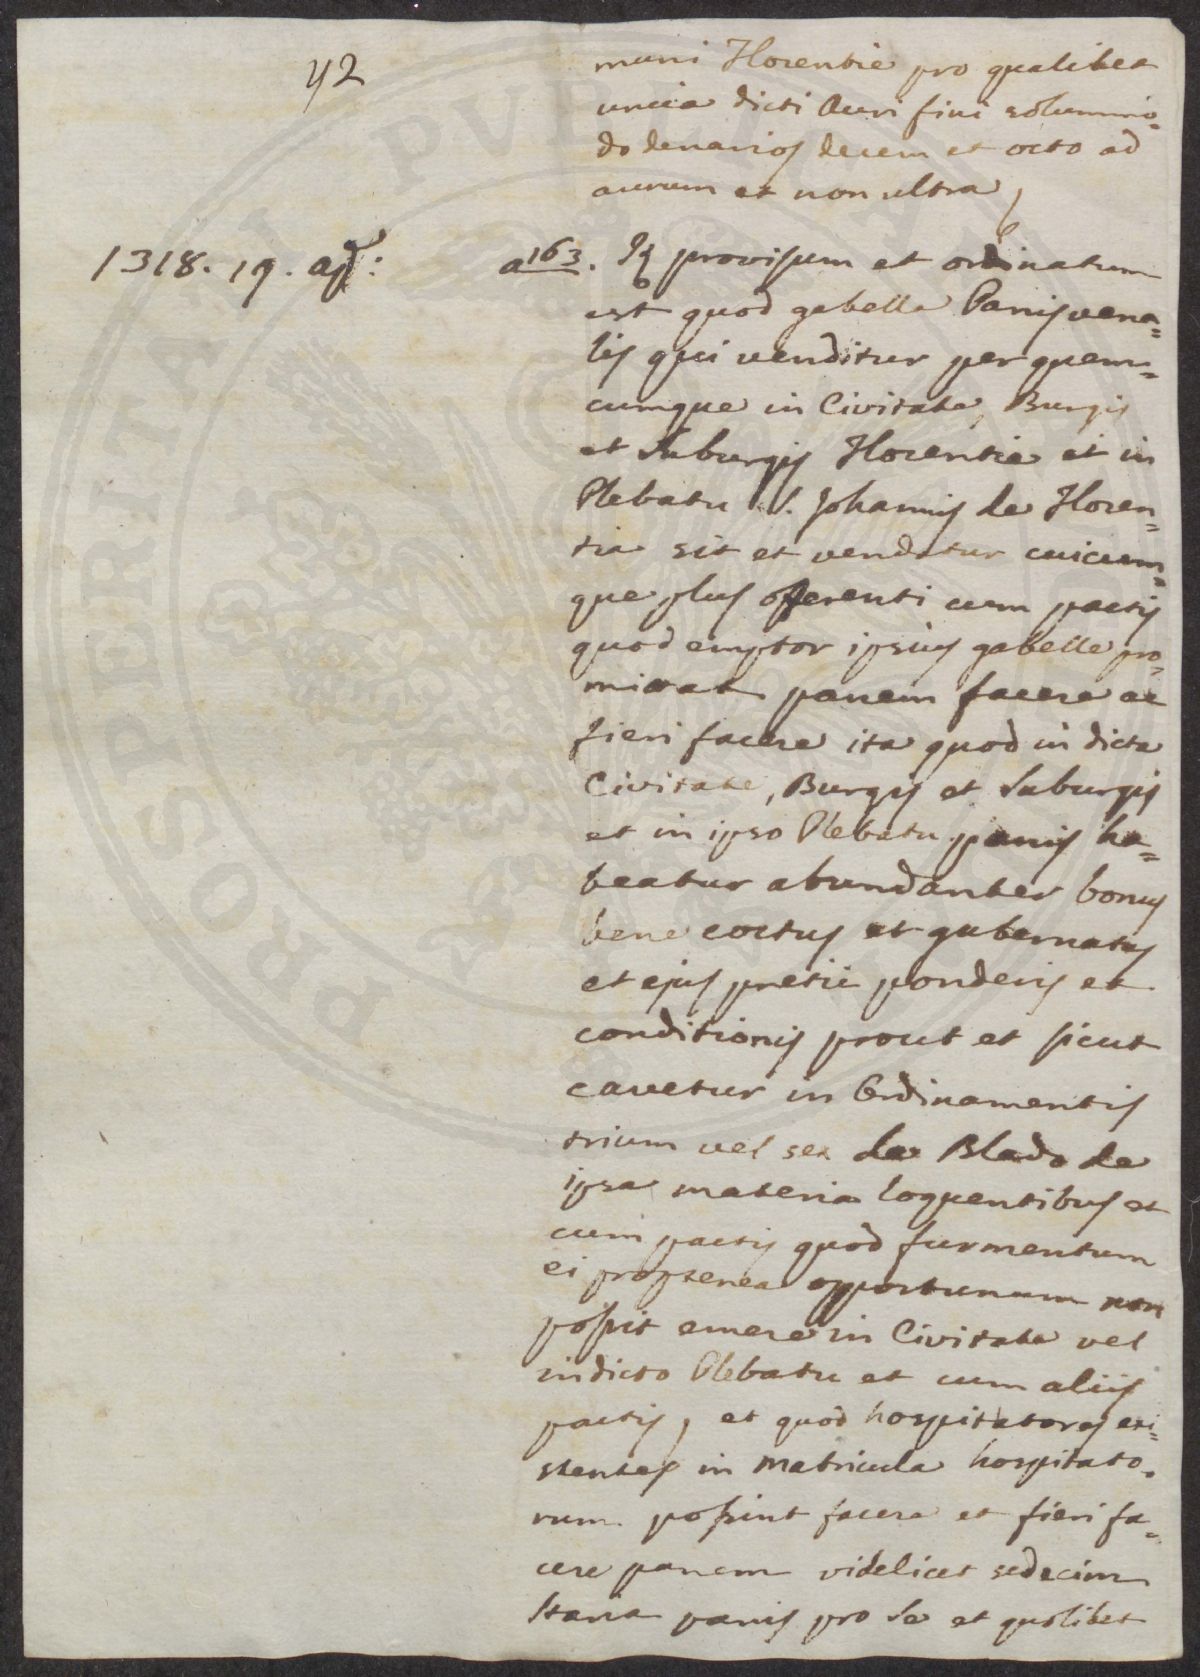 42
muni Florentie pro qualibet
uncia dicti Auri fini solummo=
do denarios decem et octo ad
aurum et non ultra,
1318. 19. ap: a 163. It provisum et ordinatum
est quod gabella Panis vena=
lis qui venditur per quem=
cumque in Civitate, Burgis
et Suburgis Florentie et in
Plebatu S. Johannis de Floren=
tia sit et vendatur cuicum=
que plus offerenti cum pactis
quod emptor ipsius gabelle pro=
mictat panem facere ac
fieri facere ita quod in dicta
Civitate, Burgis et Suburgis
et in ipso Plebatu panis ha=
beatur abundanter bonus
bene coctus et gubernatus
et ejus pretii ponderis et
conditionis prout et sicut
cavetur in Ordinamentis
trium vel sex de Blado de
ipsa materia loquentibus et
cum pactis quod furmentum
ei propterea opportunum non
possit emere in Civitate vel
in dicto Plebatu et cum aliis
pactis, et quod hospitatores exi=
stentes in matricula hospitato=
rum possint facere et fieri fa=
cere panem videlicet sedecim
staria panis pro se et quolibet
PROSPERITATI PVBLICAE